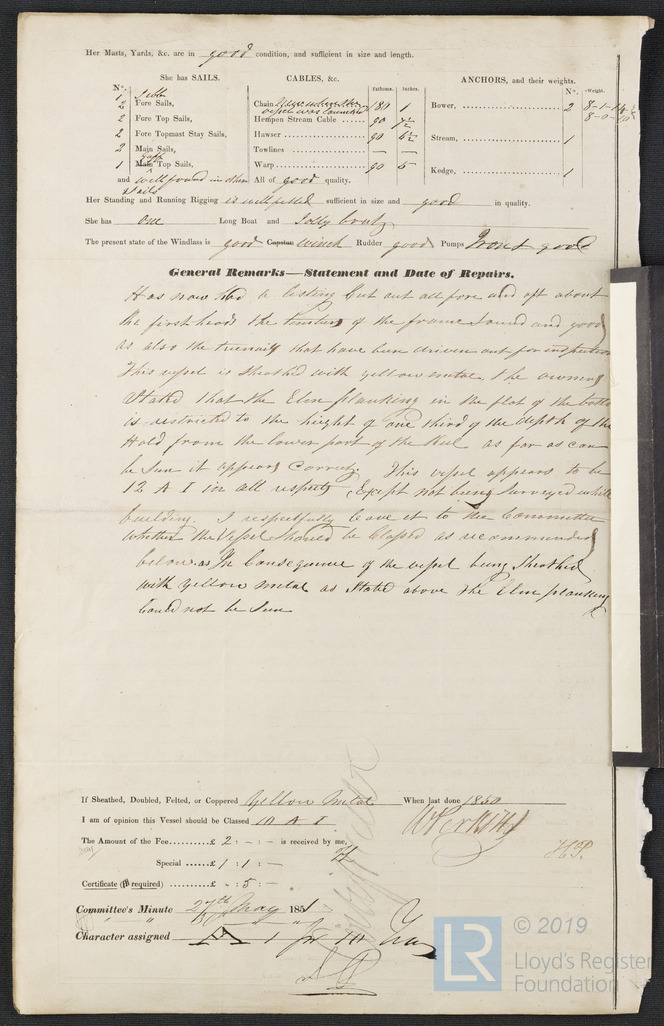 Her Masts, Yards, &c. are in good condition, and sufficient in size and length.
She has SAILS.
CABLES, &c.
ANCHORS, and their weights.
N°.
Fathoms. Inches.
N°. Weight.
1 Jibb
2 Fore Sails,
2 Fore Top Sails,
2 Fore Topmast Stay Sails,
2 Main Sails,
1 Main Gaff Top Sails,
and well found in other Sails
Chain vessel was launched 180 1
Hempen Stream Cable ...... 90 7½
Hawser ...... 90 6½
Towlines ...... — —
Warp ...... 90 5
All of good quality.
Bower, ...... 2 8-1-14
8-0-10
Stream, ...... 1
Kedge, ...... 1
Her Standing and Running Rigging is well fitted sufficient in size and good in quality.
She has one Long Boat and Jolly boat
The present state of the Windlass is good Capstan winch Rudder good Pumps Iron & good
General Remarks—Statement and Date of Repairs.
Has now had a listing Cut out all fore and aft about
the first heads the timbers of the frame Sound and good
as also the trenails that have been driven out for inspection
This vessel is Sheathed with yellow metal. the owners
Stated that the Elm planking in the flat of the bottom
is restricted to the height of one third of the depth of the
Hold from the lower part of the Keel as far as can
be Seen it appears Correct. This vessel appears to be
12 A 1 in all respects, Except not being Surveyed while
building. I respectfully leave it to the Committee
whether the Vessel Should be Classed as recommended
below as In Consequence of the vessel being Sheathed
with yellow metal as Stated above the Elm planking
Could not be Seen
If Sheathed, Doubled, Felted, or Coppered Yellow Metal When last done 1850
I am of opinion this Vessel should be Classed 10 A 1
The Amount of the Fee......£ 2 : - : - is received by me,
Special ......£ 1 : 1 : —
Certificate (if required) ......£ - : 5 : —
H.P.
Committee's Minute 27th May 1851
Character assigned A 1 for 10 Yrs
© 2019
LR
Lloyd's Register
Foundation